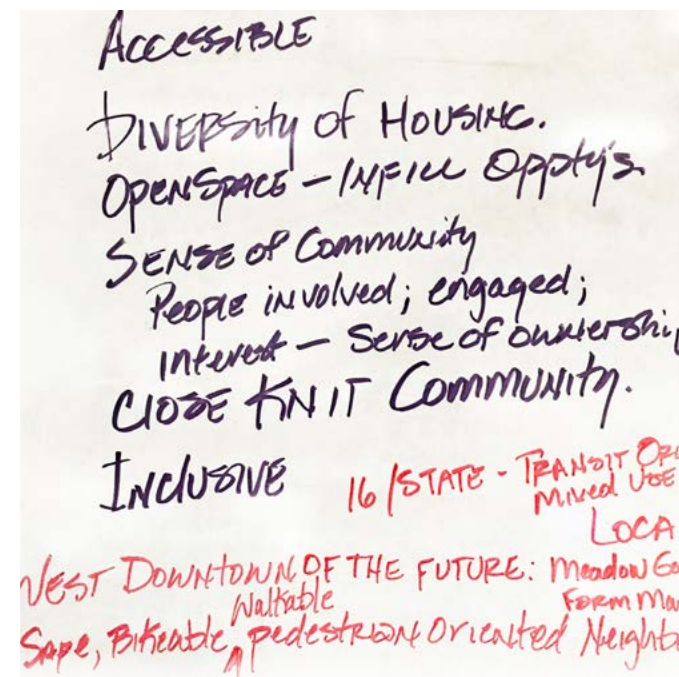 Accessible
Diversity of Housing.
Open Space – Infill Oppty's
Sense of Community
People involved; engaged;
interest – Sense of ownershi
Close Knit Community.
Inclusive
16/State - Transit
Mixed Use
Loca
West Downtown of the Future: Meadow
Form
Walkable
Safe, Bikeable, ^ pedestrian Oriented Neighb